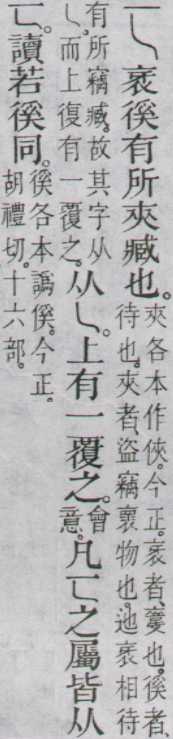 匸衺徯有所夾臧也。夾各本作俠。今正。衺者、也。徯者、待也。夾者、盜竊褱物也。迆衺相待
有所竊臧。故其字从乚。而上復有一覆之。从乚。上有一覆之。會意。凡匸之屬皆从
匸。讀若徯同。徯各本譌傒。今正。胡禮切。十六部。